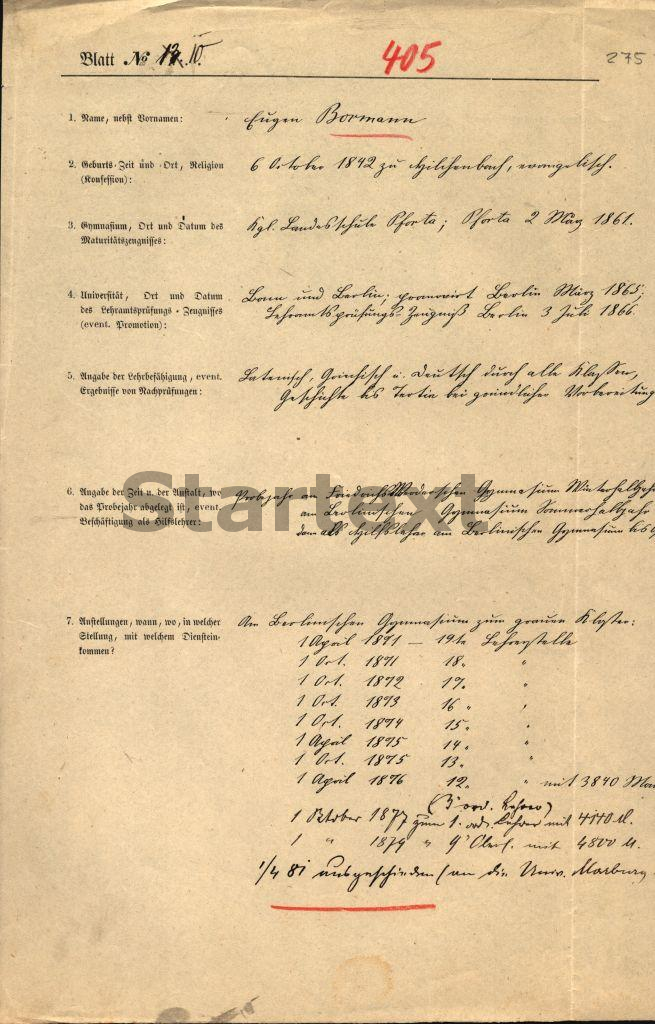 Blatt № 12. IV. 405 275
1. Name, nebst Vornamen: Eugen Bormann
2. Geburts-Zeit und Ort, Religion 6 October 1842 zu Hilchenbach, evangelisch.
(Konfession):
3. Gymnasium, Ort und Datum des Kgl. Landesschule Pforta; Pforta 2 März 1861.
Maturitätszeugnisses:
4. Universität, Ort und Datum Bonn und Berlin; promovirt Berlin März 1865;
des Lehramtsprüfungs-Zeugnisses Lehramtsprüfungs-Zeugniß Berlin 3 Juli 1866.
(event. Promotion):
5. Angabe der Lehrbefähigung, event. Lateinisch, Griechisch u. Deutsch durch alle Klassen,
Ergebnisse von Nachprüfungen: Geschichte bis Tertia bei gründlicher Vorbereitung
6. Angabe der Zeit u. der Anstalt, wo Probejahr am Friedrichs Werderschen Gymnasium Winterhalbjahr
das Probejahr abgelegt ist, event. am Berlinischen Gymnasium Sommerhalbjahr
Beschäftigung als Hilfslehrer: dann als Hilfslehrer am Berlinischen Gymnasium bis
Startext
7. Anstellungen, wann, wo, in welcher Am Berlinischen Gymnasium zum grauen Kloster:
Stellung, mit welchem Dienstein- 1 April 1871 — 19te Lehrerstelle
kommen? 1 Oct. 1871 18. "
1 Oct. 1872 17. "
1 Oct. 1873 16. "
1 Oct. 1874 15. "
1 April 1875 14. "
1 Oct. 1875 13. "
1 April 1876 12. " mit 3840 Mar
(3t ord. Lehrer)
1 Oktober 1877 zum 1. ord. Lehrer mit 4140 M.
1 " 1879 " 9t Oberl. mit 4800 M.
1/4 81 ausgeschieden (an die Univ. Marburg